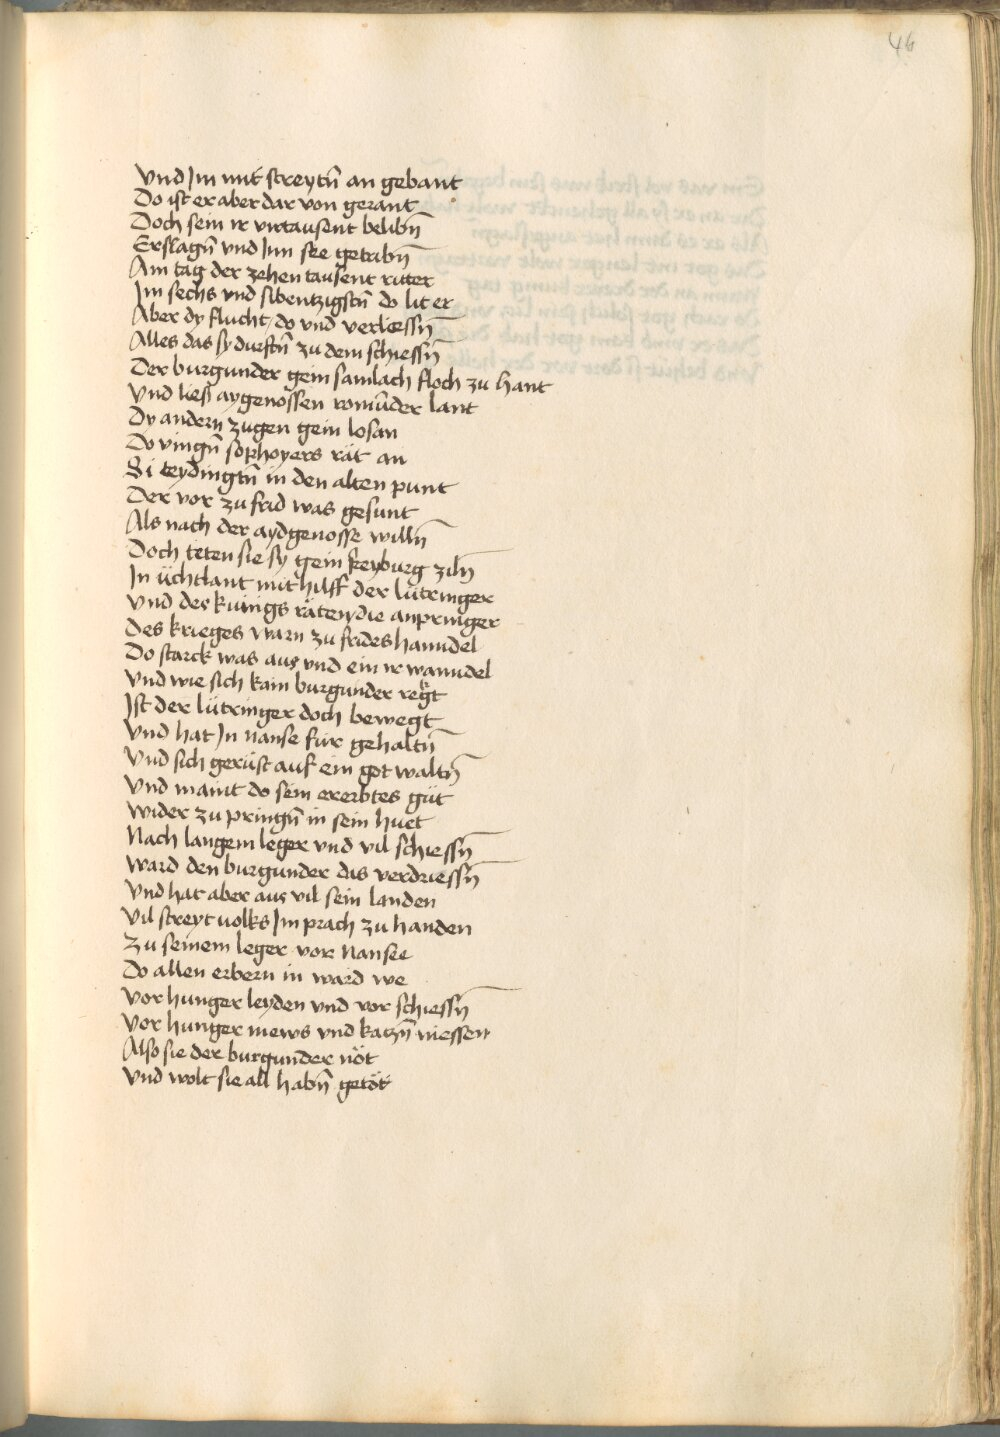 46
Vnd Im mit streytn̄ an gebant
Do ist er aber dar von gerant
Doch sein ir virtausent belibn̄
Erslagn̄ vnd Inn see getribn̄
Am tag der zehen tausent ritter
Im sechs vnd sibentzigstn̄ do lit er
Aber dy flucht do vnd verliessn̄
Alles das sy durftn̄ zu dem schiessn̄
Der burgunder gein samlach floch zu hant
Vnd ließ aygenossen romūder lant
Dy andern zugen gein losan
Do vingn̄ sophoyers rät an
Si teydingtn̄ in den alten punt
Der vor zu frid was gesunt
Als nach der aydgenosse willn̄
Doch teten sie sy gein freyburg ziln̄
In üchtlant mit hilff der lütringer
Vnd des kunigs räten die anpringer
Des krieges warn zu frides hanndel
Do starck was aus vnd ein ir wanndel
Vnd wie sich kain burgunder regt
Ist der lütringer doch bewegt
Vnd hat In nanse für gehaltn̄
Vnd sich gerüst auf ein got waltn̄
Vnd maint do sein ererbtes güt
Wider zu pringn̄ in sein huet
Nach langem leger vnd vil schiessn̄
Ward den burgunder das verdriessn̄
Vnd hat aber aus vil sein landen
Vil streyt uolks Im prach zu handen
Zu seinem leger vor Nansee
Do allen erbern in ward we
Vor hunger leyden vnd vor schiessn̄
Vor hunger mews vnd katzn̄ niessen
Also sie der burgunder nöt
Vnd wolt sie all habn̄ getöt